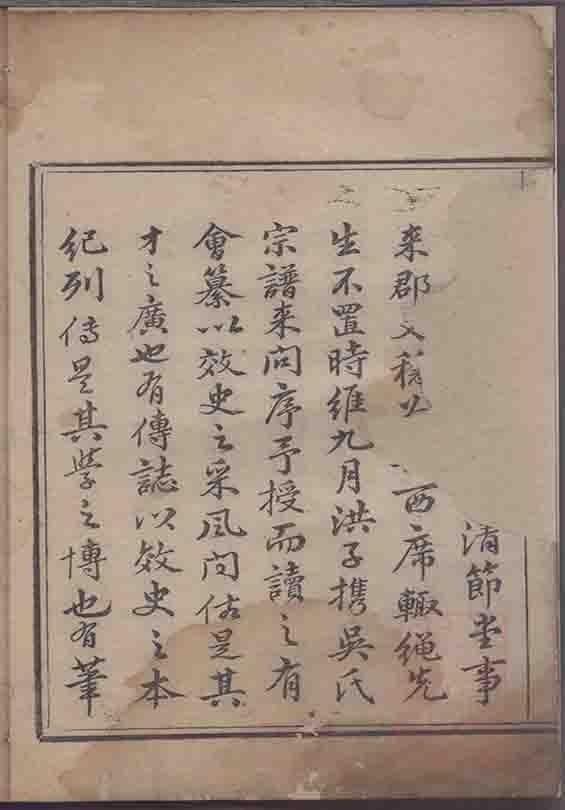 清節堂事
來郡文稱公西席輙繩先
生不置時維九月洪子携吳氏
宗譜来問序予授而讀之有
會纂以效史之采風問俗是其
才之廣也有傳誌以效史之本
紀列傳是其學之博也有筆